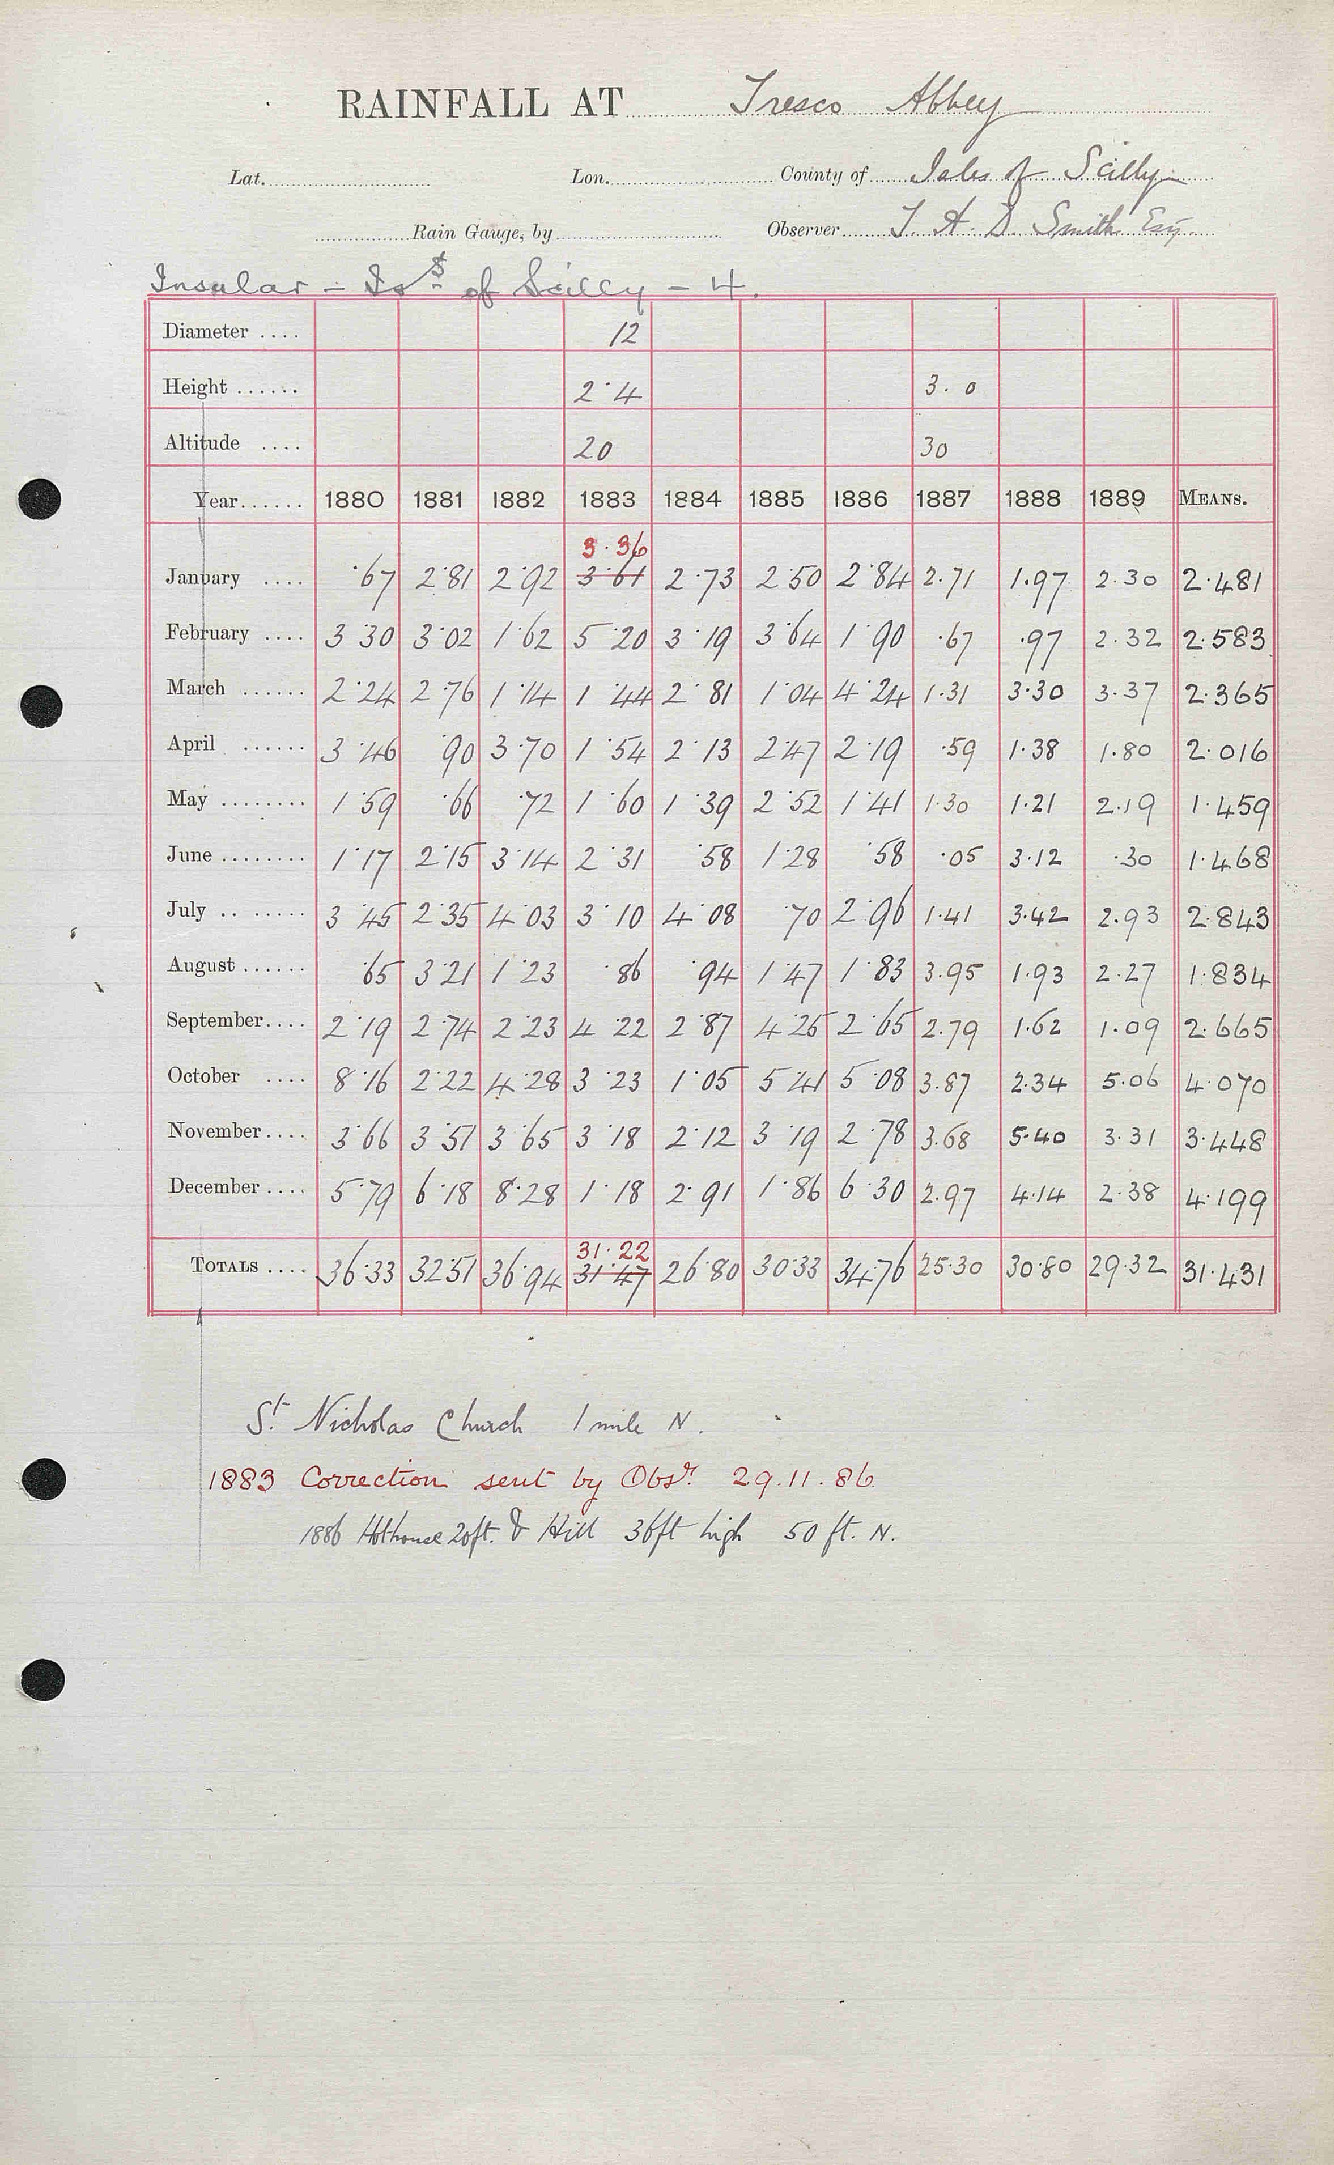 RAINFALL AT Tresco Abbey
Lat. Lon. County of Isles of Scilly
Rain Gauge, by Observer T. A. D. Smith Esq.
Insular - Is^s of Scilly - 4.
Diameter .... 12
Height ...... 2·4 3.0
Altitude .... 20 30
Year ...... 1880 1881 1882 1883 1884 1885 1886 1887 1888 1889 MEANS.
3·36
January .... ·67 2·81 2·92 3·61 2·73 2·50 2·84 2.71 1.97 2.30 2·481
February .... 3·30 3·02 1·62 5·20 3·19 3·64 1·90 ·67 ·97 2.32 2·583
March ...... 2·24 2·76 1·14 1·44 2·81 1·04 4·24 1·31 3·30 3·37 2·365
April ...... 3·46 90 3·70 1·54 2·13 2·47 2·19 ·59 1·38 1.80 2·016
May ........ 1·59 ·66 ·72 1·60 1·39 2·52 1·41 1·30 1·21 2·19 1·459
June ........ 1·17 2·15 3·14 2·31 ·58 1·28 ·58 ·05 3·12 ·30 1·468
July .. ...... 3·45 2·35 4·03 3·10 4·08 ·70 2·96 1·41 3·42 2.93 2·843
August ...... ·65 3·21 1·23 ·86 ·94 1·47 1·83 3.95 1.93 2·27 1·834
September.... 2·19 2·74 2·23 4·22 2·87 4·25 2·65 2.79 1.62 1.09 2·665
October .... 8·16 2·22 4·28 3·23 1·05 5·41 5·08 3.87 2.34 5.06 4·070
November.... 3·66 3·51 3·65 3·18 2·12 3·19 2·78 3.68 5.40 3.31 3·448
December .... 5·79 6·18 8·28 1·18 2·91 1·86 6·30 2.97 4.14 2.38 4·199
31·22
TOTALS .... 36·33 32·51 36·94 31·47 26·80 30·33 34·76 25·30 30·80 29·32 31·431
St. Nicholas Church 1 mile N.
1883 Correction sent by Obsr. 29.11.86
1886 Hothouse 20ft. & Hill 36ft high 50 ft. N.